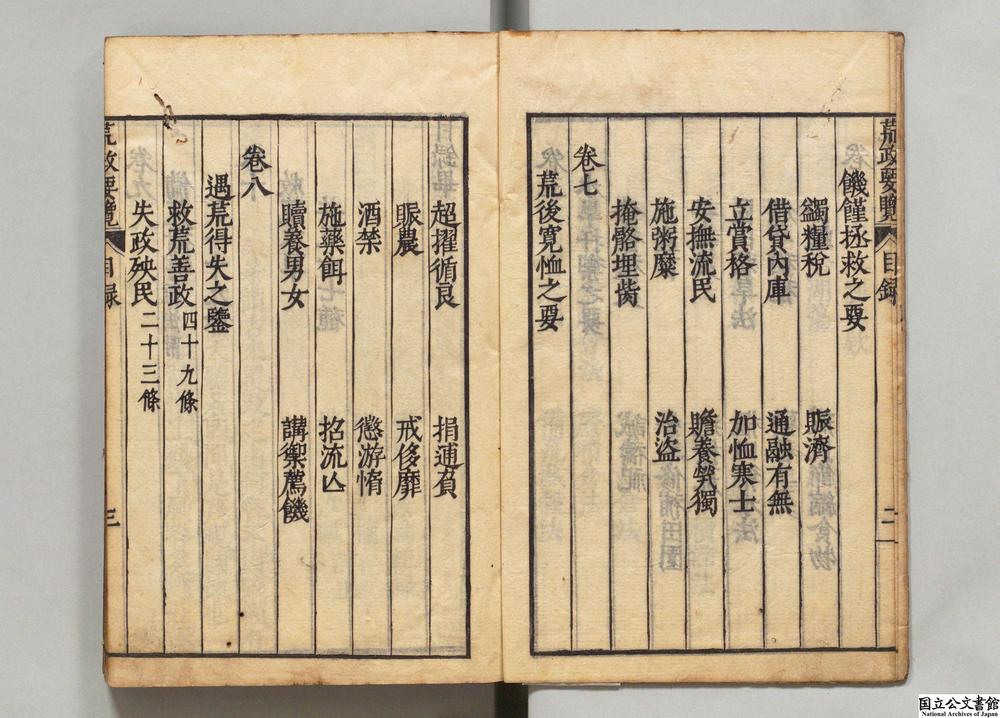 荒政要覽 目録 二
饑饉拯救之要
蠲糧稅 賑濟
借貸內庫 通融有無
立賞格 加恤寒士
安撫流民 贍養煢獨
施粥糜 治盜
掩骼埋胔
卷七
荒後寬恤之要
超擢循良 捐逋負
賑農 戒侈靡
酒禁 懲游惰
施藥餌 招流亾
贖養男女 講禦薦饑
卷八
遇荒得失之鑒
救荒善政四十九條
失政殃民二十三條
荒政要覽 目録 三
国立公文書館
National Archives of Japan